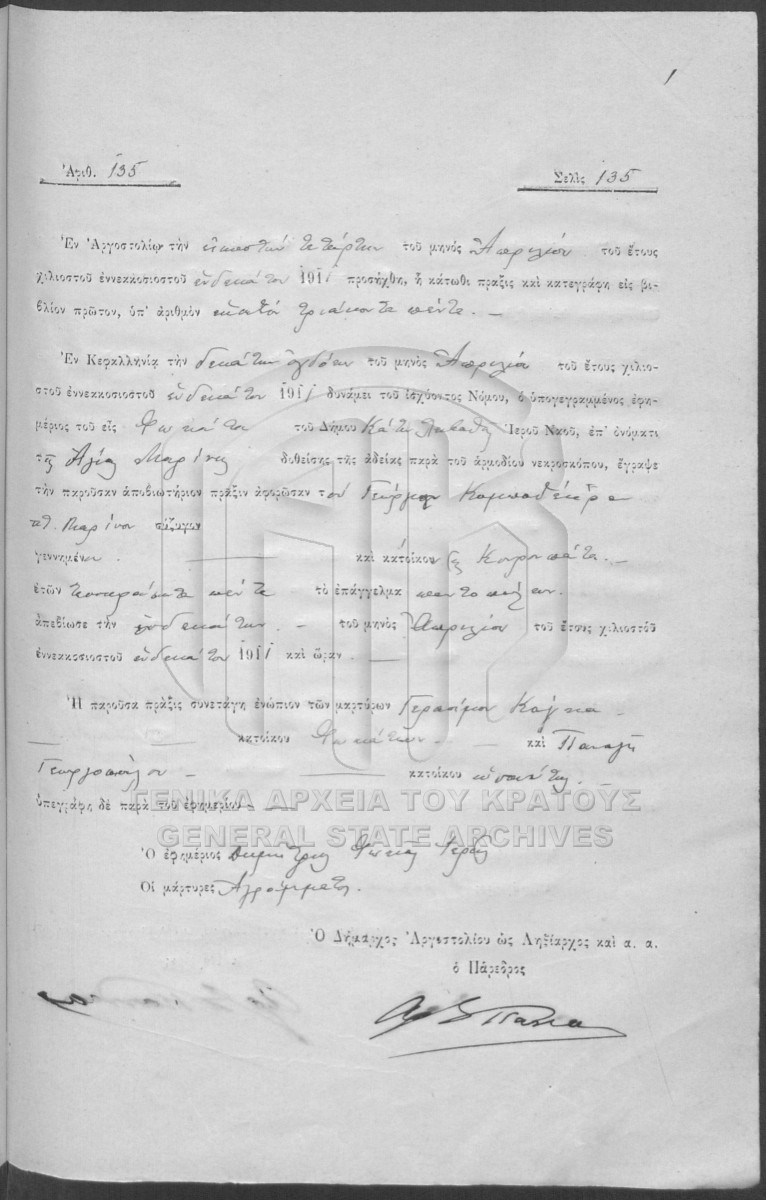 1
Ἀριθ. 135
Σελὶς 135
Ἐν Ἀργοστολίῳ τὴν εἰκοστὴν τετάρτην τοῦ μηνός Ἀπριλίου τοῦ ἔτους
χιλιοστοῦ ἐννεακοσιοστοῦ ἑνδεκάτου 1911 προσήχθη, ἡ κάτωθι πρᾶξις καὶ κατεγράφη εἰς βι-
βλίον πρῶτον, ὑπ' ἀριθμὸν ἑκατόν τριάκοντα πέντε. —
Ἐν Κεφαλληνίᾳ τὴν δεκάτην ὀγδόην τοῦ μηνὸς Ἀπριλίου τοῦ ἔτους χιλιο-
στοῦ ἐννεακοσιοστοῦ ἑνδεκάτου 1911 δυνάμει τοῦ ἰσχύοντος Νόμου, ὁ ὑπογεγραμμένος ἐφη-
μέριος τοῦ εἰς Φωκάτα τοῦ Δήμου Κάτω Λειβαθοῦς Ἱεροῦ Ναοῦ, ἐπ' ὀνόματι
τῆς Ἁγίας Μαρίνης δοθείσης τῆς ἀδείας παρὰ τοῦ ἁρμοδίου νεκροσκόπου, ἔγραψε
τὴν παροῦσαν ἀποβιωτήριον πρᾶξιν ἀφορῶσαν τον Γεώργιον Καμποθέκρα
Μαρίνου σύζυγον
γεννημένον — καὶ κάτοικον
ἐτῶν τεσσαράκοντα πέντε τὸ ἐπάγγελμα παντοπώλην.
ἀπεβίωσε τὴν ἑνδεκάτην — τοῦ μηνὸς Ἀπριλίου τοῦ ἔτους χιλιοστοῦ
ἐννεακοσιοστοῦ ἑνδεκάτου 1911 καὶ ὥραν —
Ἡ παροῦσα πρᾶξις συνετάγη ἐνώπιον τῶν μαρτύρων Γερασίμου
— κατοίκου Φωκάτων — καὶ Παναγῆ
Γεωργοπούλου — κατοίκου —
ὑπεγράφη δὲ παρὰ τοῦ ἐφημερίου —
Ὁ ἐφημέριος Δημήτριος Φωκᾶς Ἱερεύς
Οἱ μάρτυρες Ἀγράμματοι.
Ὁ Δήμαρχος Ἀργοστολίου ὡς Ληξίαρχος καὶ α. α.
ὁ Πάρεδρος
ΓΕΝΙΚΑ ΑΡΧΕΙΑ ΤΟΥ ΚΡΑΤΟΥΣ
GENERAL STATE ARCHIVES